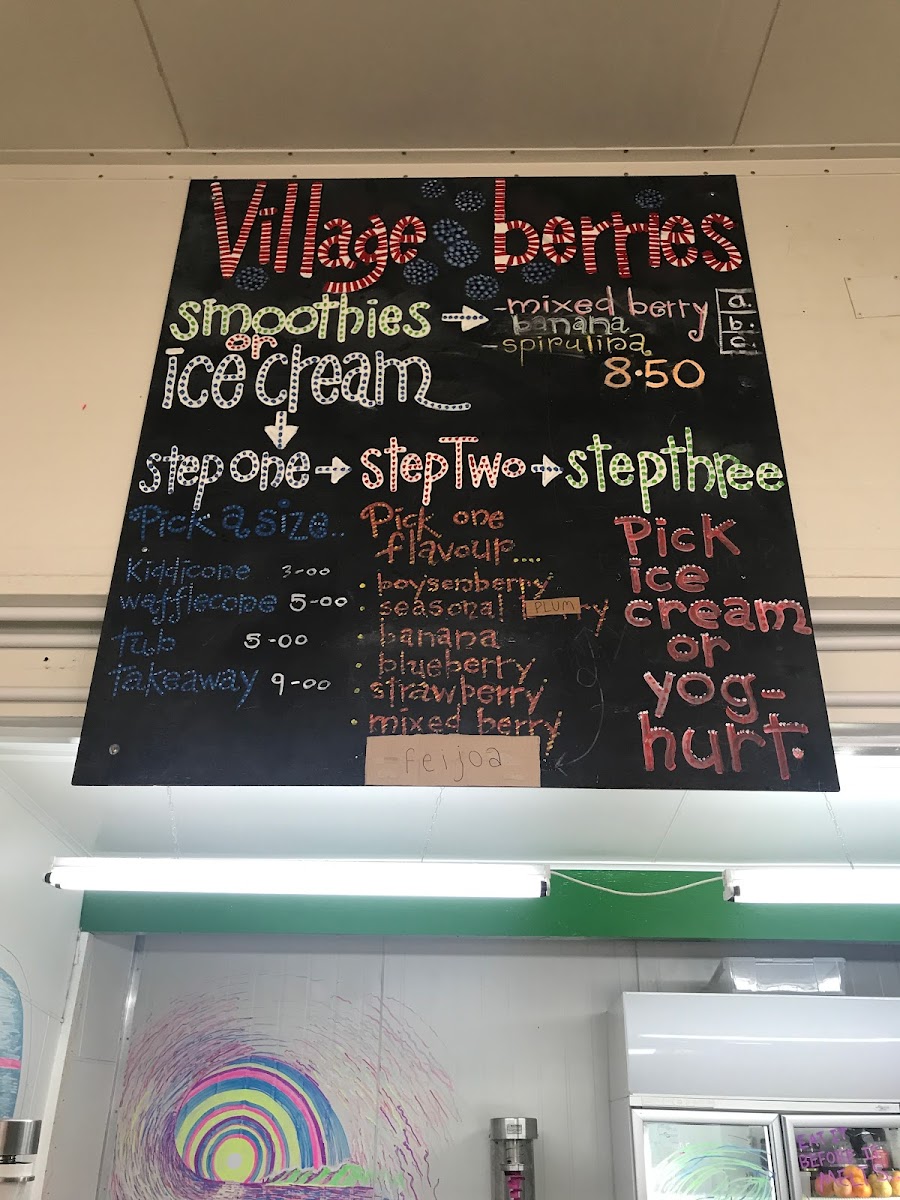 Village berries
smoothies
or
ice cream
- mixed berry
banana
- spirulina
a.
b.
8.50
step one
step Two
step three
Pick a size..
Kiddicone 3-00
wafflecone 5-00
tub 5-00
takeaway 9-00
Pick one
flavour....
• boysenberry
• seasonal PLUM
• banana
• blueberry
• strawberry
mixed berry
- feijoa
Pick
ice
cream
or
yog-
hurt.
EAT IT
BEFORE IT
MELTS